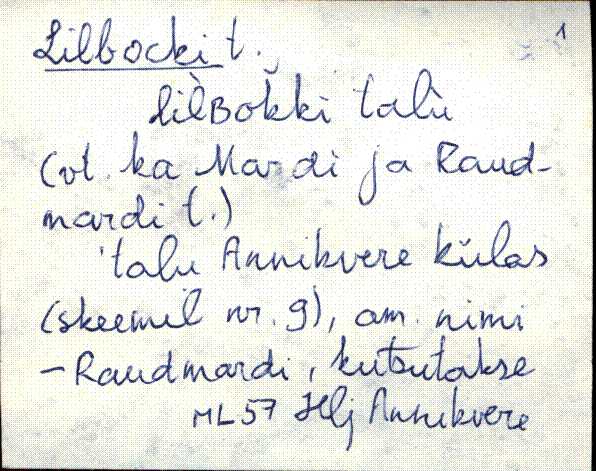 1
Lilbocki t.
lìlBokki talù
(vt. ka Mardi ja Raud-
mardi t.)
'talu Annikvere külas
(skeemil nr. 9), am. nimi
- Raudmardi, kutsutakse
ML57 Hlj Annikvere